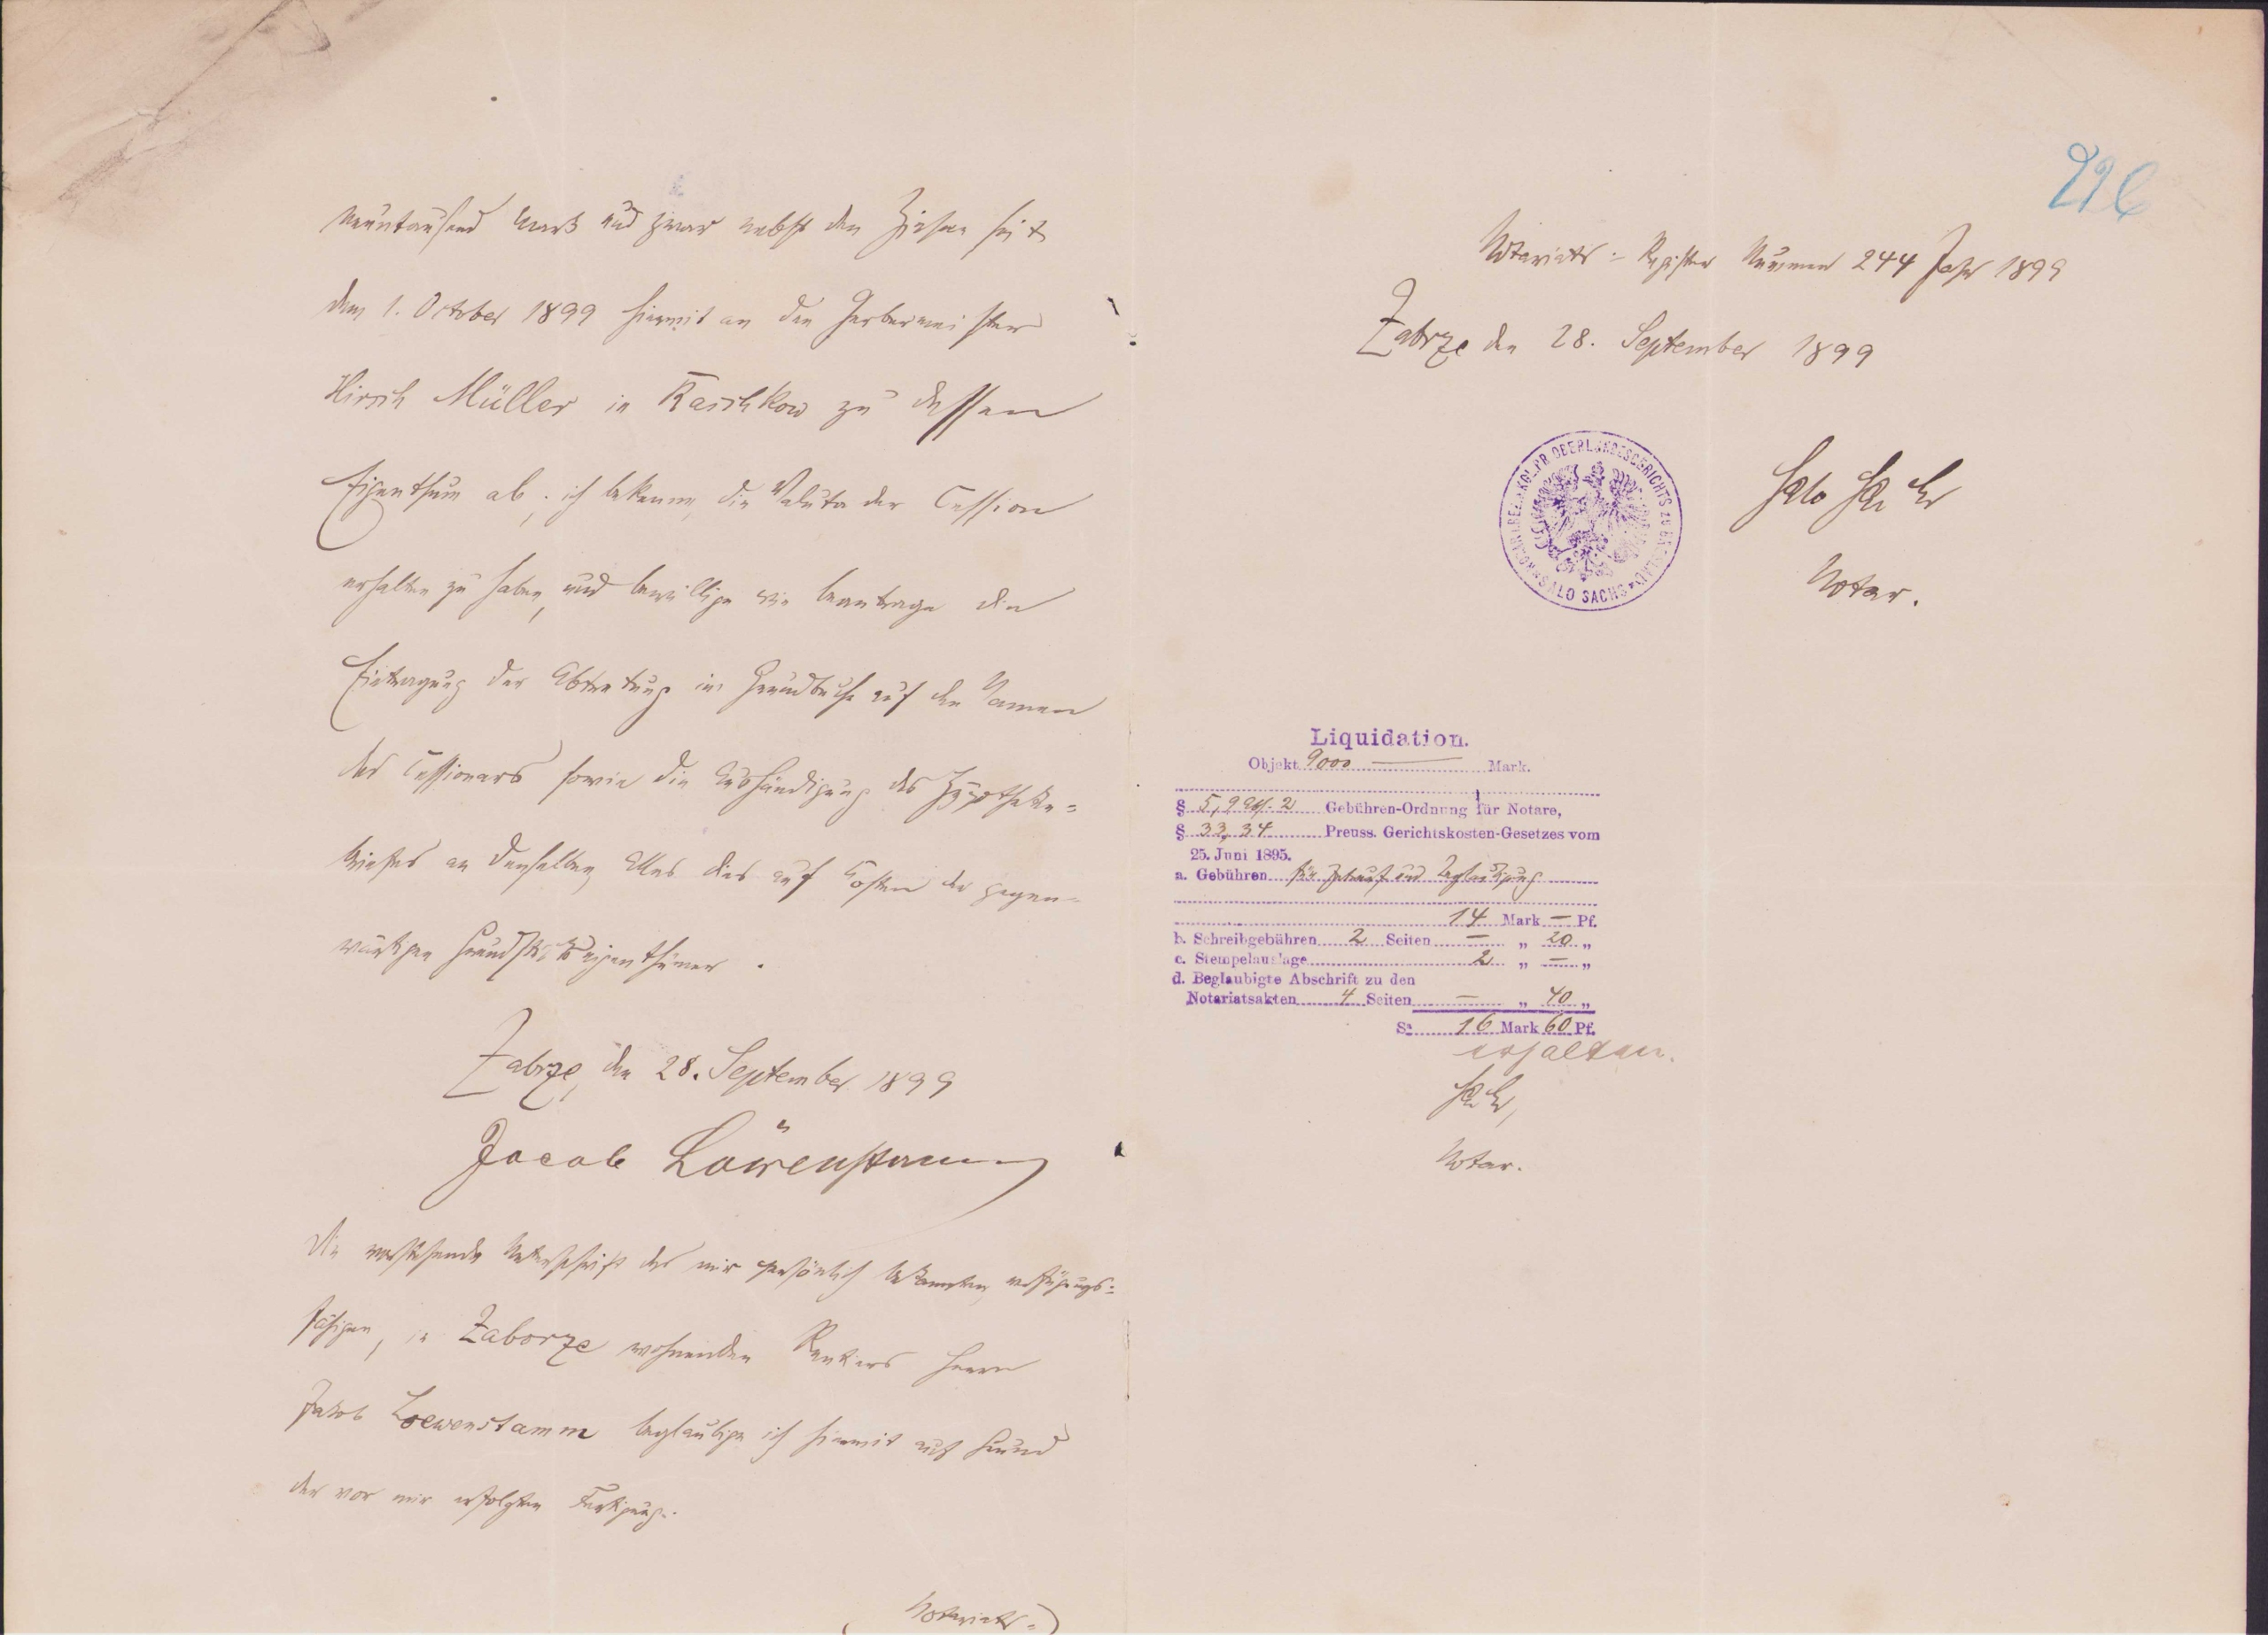 neuntausend Mark und zwar nebst den Zinsen seit
dem 1. October 1899 hiermit an den Gerbermeister
Hirsch Müller in Raschkow zu dessen
Eigenthum ab; ich bekenne, die Valuta der Cession
erhalten zu haben, und bewillige wie beantrage die
Eintragung der Abtretung im Grundbuche auf den Namen
des Cessionars sowie die Aushändigung des Hypotheken=
briefes an denselben, Alles dies auf Kosten der gegen-
wärtigen Grundstückseigenthümer.
Zabrze, den 28. September 1899
Jacob Löwenstamm
Die vorstehende Unterschrift des mir persönlich bekannten, verfügungs=
fähigen, in Zaborze wohnenden Rentiers Herrn
Jakob Loewenstamm beglaubige ich hiermit auf Grund
der vor mir erfolgten Fertigung.
Notariats=
226
Notariats=Register Nummer 244 Jahr 1899
Zabrze den 28. September 1899
OBERLANDESGERICHTS ZU BRESLAU
SALO SACHS
Salo Sachs
Notar.
Liquidation.
Objekt 9000 Mark.
§ 5, 9 2 Gebühren-Ordnung für Notare,
§ 33, 34 Preuss. Gerichtskosten-Gesetzes vom
25. Juni 1895.
a. Gebühren für Entwurf und Beglaubigung
14 Mark — Pf.
b. Schreibgebühren 2 Seiten — „ 20 „
c. Stempelauslage 2 „ — „
d. Beglaubigte Abschrift zu den
Notariatsakten 4 Seiten — „ 40 „
Sa 16 Mark 60 Pf.
erhalten.
Sachs,
Notar.